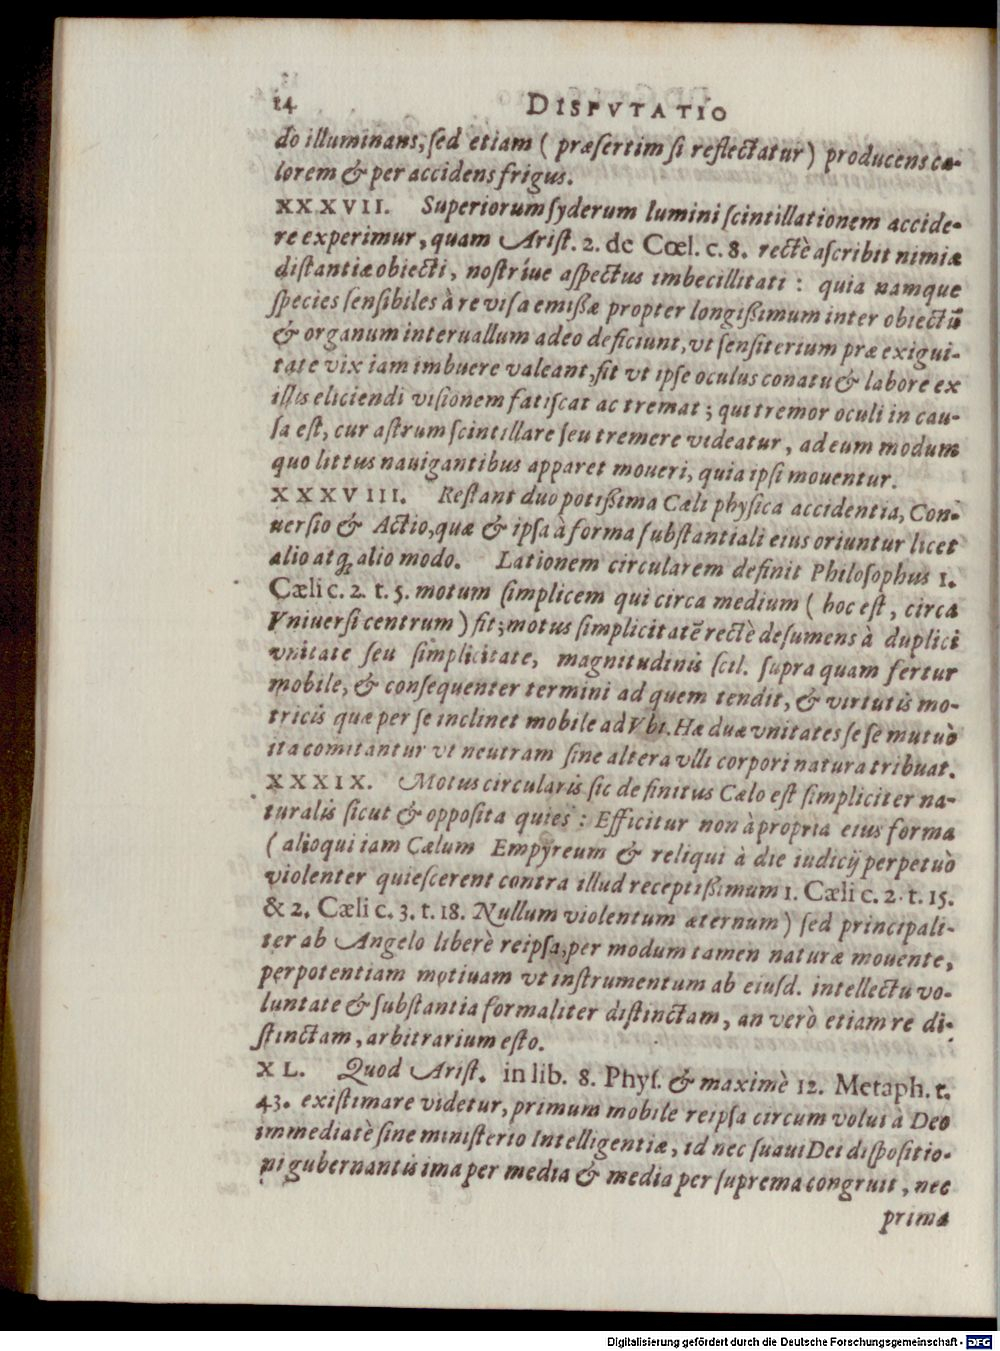 14 DISPVTATIO
do illuminans, ſed etiam ( præſertim ſi reflectatur ) producens ca-
lorem & per accidens frigus.
XXXVII. Superiorum ſyderum lumini ſcintillationem accide-
re experimur, quam Ariſt. 2. de Cœl. c. 8. rectè aſcribit nimiæ
diſtantiæ obiecti, noſtríue aſpectus imbecillitati : quia namque
ſpecies ſenſibiles à re viſa emiſſæ propter longiſſimum inter obiectũ
& organum interuallum adeo deficiunt, vt ſenſiterium præ exigui-
tate vix iam imbuere valeant, fit vt ipſe oculus conatu & labore ex
illis eliciendi viſionem fatiſcat ac tremat ; qui tremor oculi in cau-
ſa eſt, cur aſtrum ſcintillare ſeu tremere videatur, ad eum modum
quo littus nauigantibus apparet moueri, quia ipſi mouentur.
XXXVIII. Reſtant duo potiſſima Cæli phyſica accidentia, Con-
uerſio & Actio, quæ & ipſa à forma ſubſtantiali eius oriuntur licet
alio atq; alio modo. Lationem circularem definit Philoſophus 1.
Cæli c. 2. t. 5. motum ſimplicem qui circa medium ( hoc eſt, circa
Vniuerſi centrum ) fit; motus ſimplicitatẽ rectè deſumens à duplici
vnitate ſeu ſimplicitate, magnitudinis ſcil. ſupra quam fertur
mobile, & conſequenter termini ad quem tendit, & virtutis mo-
tricis quæ per ſe inclinet mobile ad Vbi. Hæ duæ vnitates ſe ſe mutuò
ita comitantur vt neutram ſine altera vlli corpori natura tribuat.
XXXIX. Motus circularis ſic definitus Cælo eſt ſimpliciter na-
turalis ſicut & oppoſita quies : Efficitur non à propria eius forma
( alioqui iam Cælum Empyreum & reliqui à die iudicij perpetuò
violenter quieſcerent contra illud receptiſſimum 1. Cæli c. 2. t. 15.
& 2. Cæli c. 3. t. 18. Nullum violentum æternum ) ſed principali-
ter ab Angelo liberè reipſa, per modum tamen naturæ mouente,
per potentiam motiuam vt inſtrumentum ab eiuſd. intellectu vo-
luntate & ſubſtantia formaliter diſtinctam, an verò etiam re di-
ſtinctam, arbitrarium eſto.
XL. Quod Ariſt. in lib. 8. Phyſ. & maximè 12. Metaph. t.
43. exiſtimare videtur, primum mobile reipſa circumvolui à Deo
immediatè ſine miniſterio Intelligentiæ, id nec ſuaui Dei diſpoſitio-
ni gubernantis ima per media & media per ſuprema congruit, nec
prima
Digitalisierung gefördert durch die Deutsche Forschungsgemeinschaft - DFG